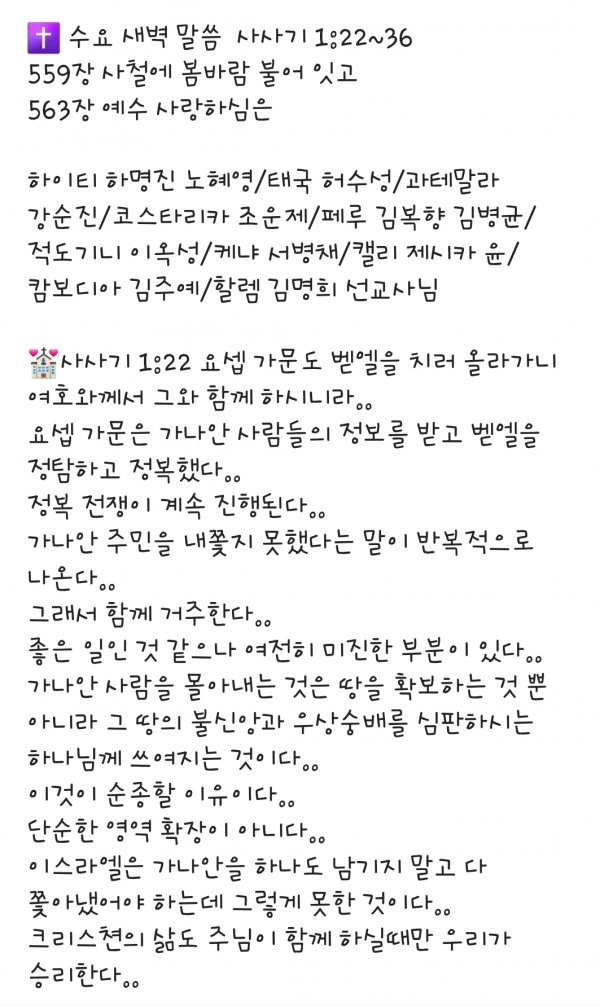 ✝️ 수요 새벽 말씀  사사기 1:22~36
559장 사철에 봄바람 불어 잇고
563장 예수 사랑하심은

하이티 하명진 노혜영/태국 허수성/과테말라
강순진/코스타리카 조운제/페루 김복향 김병균/
적도기니 이옥성/케냐 서병채/캘리 제시카 윤/
캄보디아 김주예/할렘 김명희 선교사님

💒사사기 1:22 요셉 가문도 벧엘을 치러 올라가니
여호와께서 그와 함께 하시니라。。
요셉 가문은 가나안 사람들의 정보를 받고 벧엘을
정탐하고 정복했다。。
정복 전쟁이 계속 진행된다。。
가나안 주민을 내쫓지 못했다는 말이 반복적으로
나온다。。
그래서 함께 거주한다。。
좋은 일인 것 같으나 여전히 미진한 부분이 있다。。
가나안 사람을 몰아내는 것은 땅을 확보하는 것 뿐
아니라 그 땅의 불신앙과 우상숭배를 심판하시는
하나님께 쓰여지는 것이다。。
이것이 순종할 이유이다。。
단순한 영역 확장이 아니다。。
이스라엘은 가나안을 하나도 남기지 말고 다
쫓아냈어야 하는데 그렇게 못한 것이다。。
크리스천의 삶도 주님이 함께 하실때만 우리가
승리한다。。